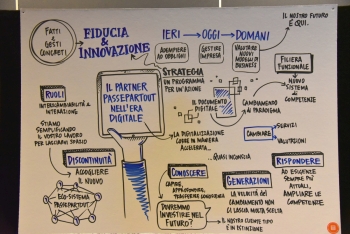 FATTI
e
GESTI
CONCRETI
FIDUCIA &
INNOVAZIONE
IERI → OGGI → DOMANI
IL NOSTRO FUTURO
È QUI.
ADEMPIERE
AD OBBLIGHI
GESTIRE
IMPRESA
VALUTARE
NUOVI
MODELLI DI
BUSINESS
STRATEGIA
UN PROGRAMMA
PER UN'AZIONE
FILIERA
FUNZIONALE
NUOVO
SISTEMA DI
COMPETENZE
IL PARTNER
PASSEPARTOUT
NELL'ERA
DIGITALE
IL DOCUMENTO
DIGITALE
CAMBIAMENTO
DI PARADIGMA
RUOLI
INTERCAMBIABILITÀ e
INTERAZIONE
STIAMO
SEMPLIFICANDO
IL VOSTRO LAVORO
PER LASCIARVI SPAZIO
LA DIGITALIZZAZIONE
CORRE IN MANIERA
ACCELERATA...
CAMBIARE
SERVIZI
VALUTAZIONI
...QUASI INCONSCIA
DISCONTINUITÀ
ACCOGLIERE
IL NUOVO
ECO-SISTEMA
PASSEPARTOUT
CONOSCERE
CAPIRE,
APPROFONDIRE,
TRASFERIRE CONOSCENZA
DOVREMMO
INVESTIRE NEL
FUTURO?
GENERAZIONI
LA VELOCITÀ DEL
CAMBIAMENTO NON
CI LASCIA MOLTA SCELTA
IL NOSTRO CLIENTE TIPO
È IN ESTINZIONE
RISPONDERE
AD ESIGENZE
SEMPRE PIÙ
ATTUALI,
AMPLIARE LE
COMPETENZE